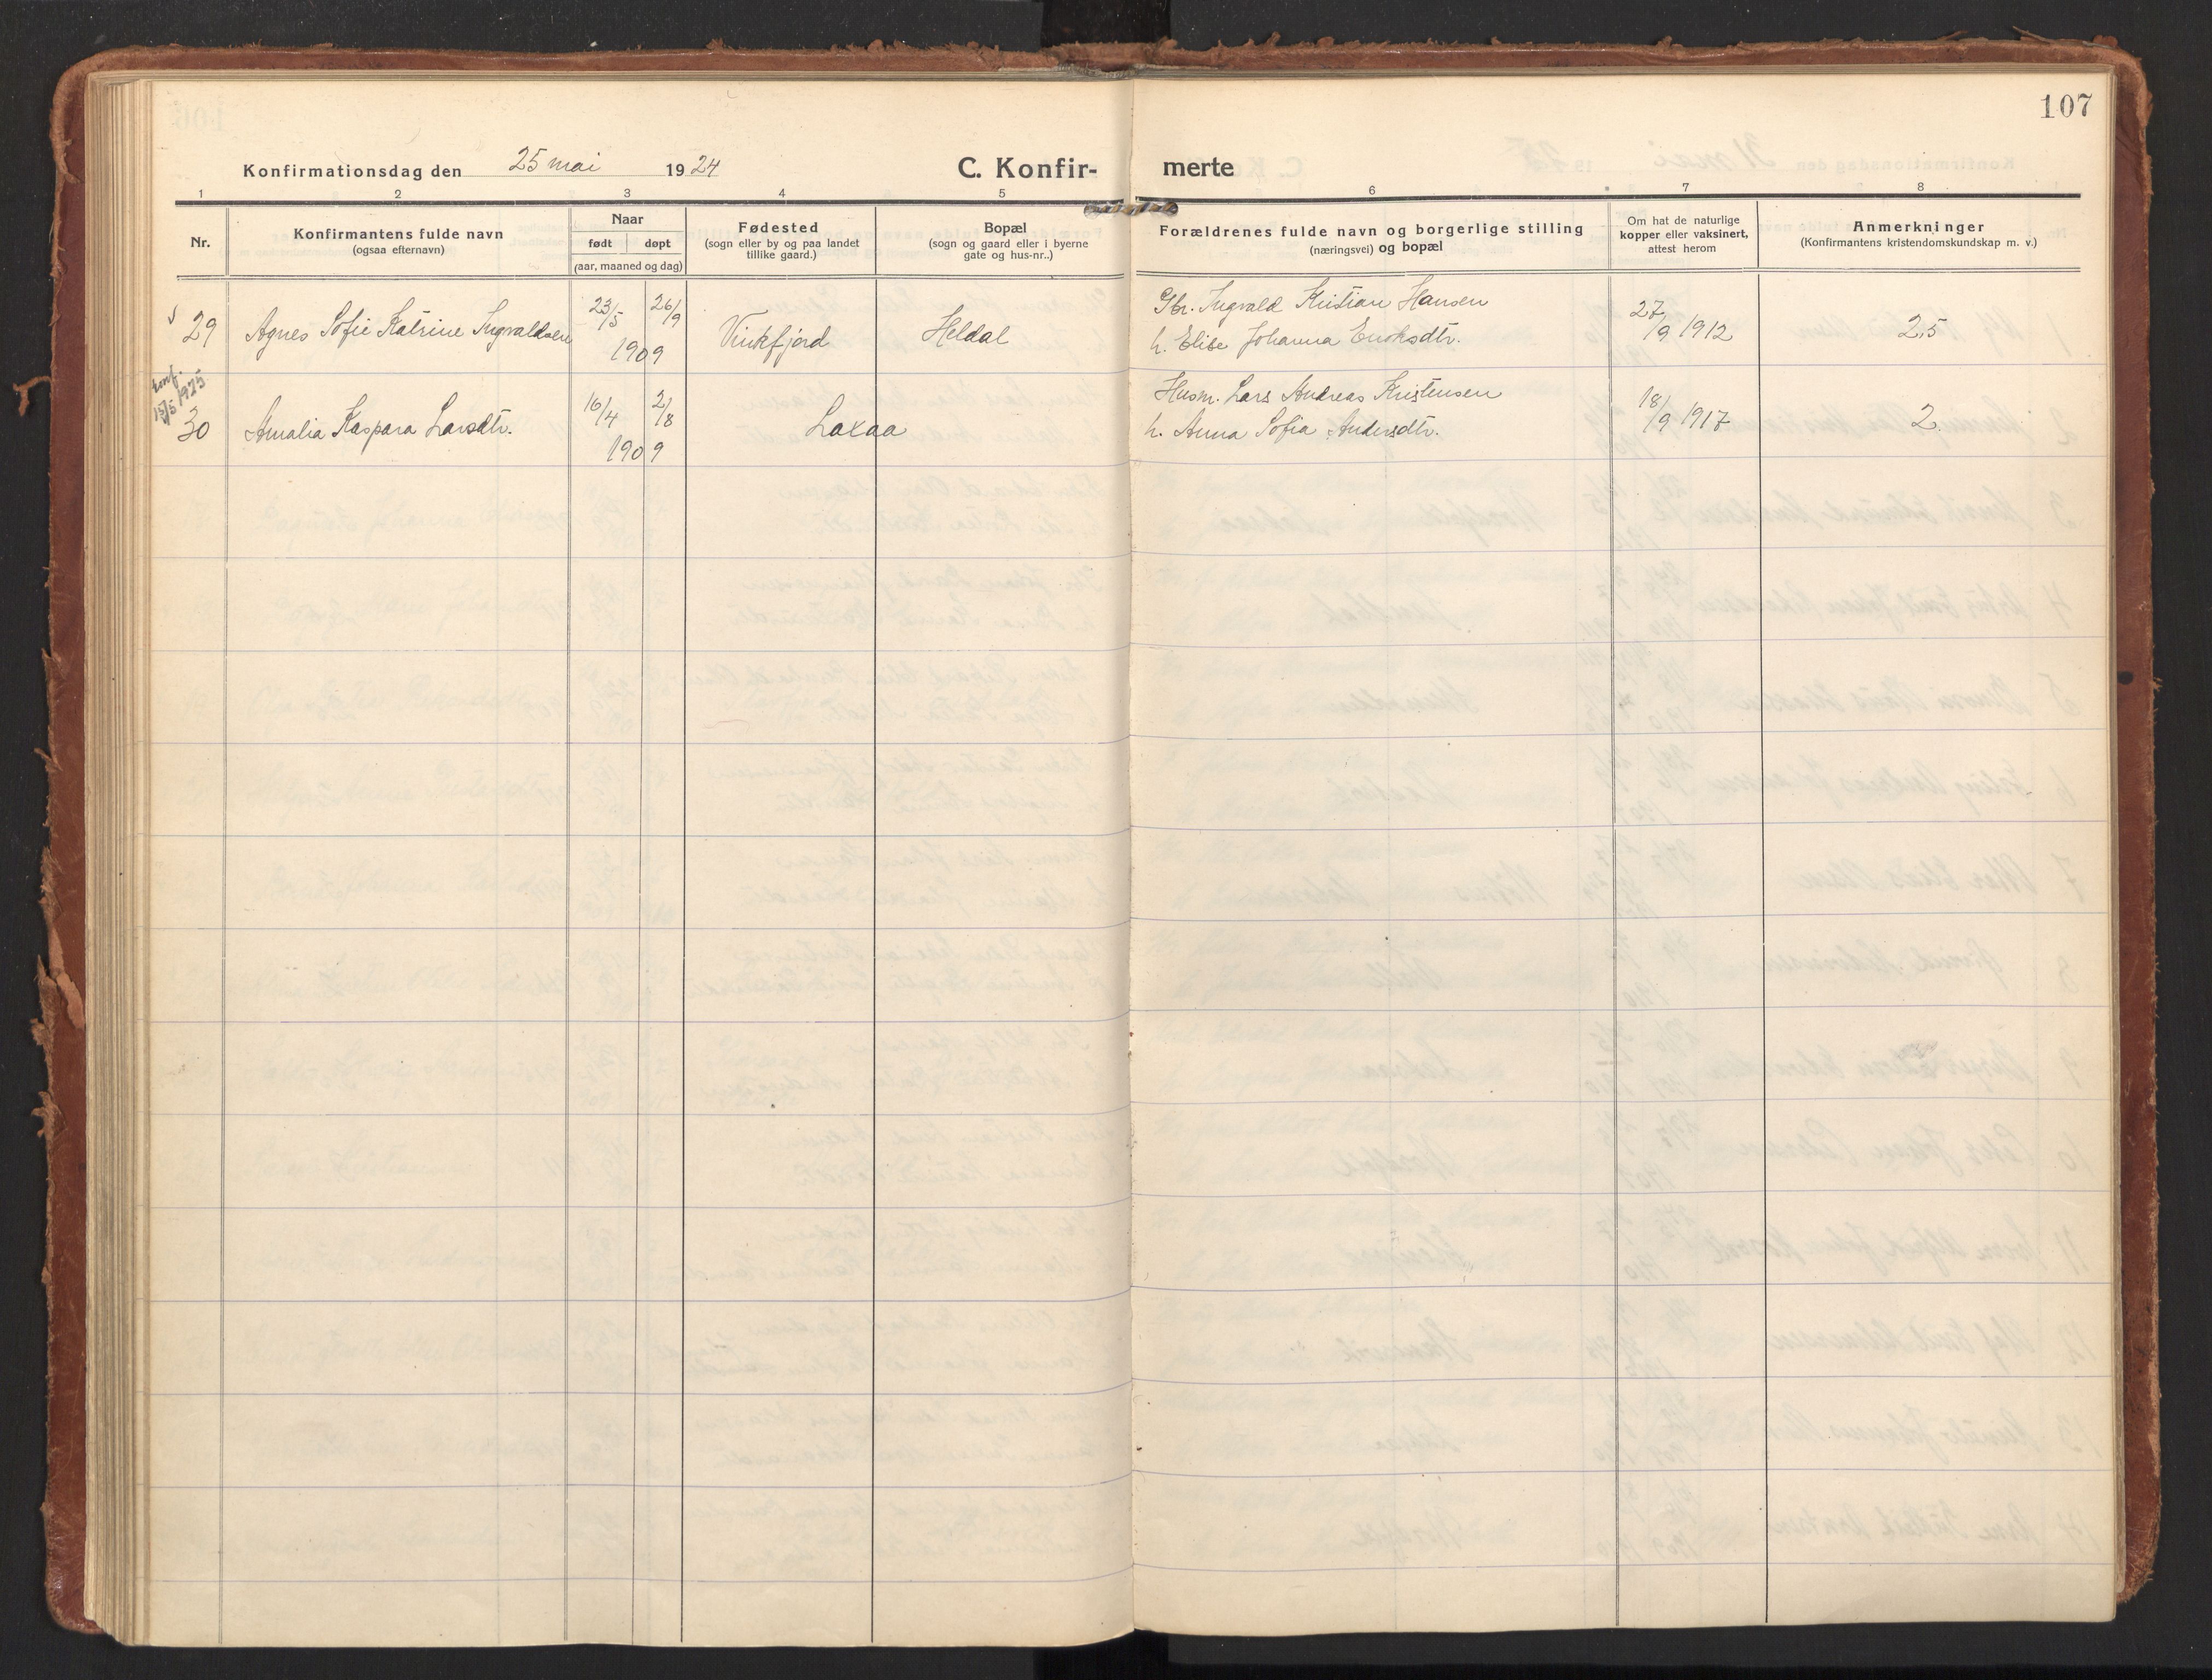 107
Konfirmationsdag den 25 mai 1924 C. Konfir- merte
1 2 3 4 5 6 7 8
Nr.
Konfirmantens fulde navn
(ogsaa efternavn)
Naar
født døpt
(aar, maaned og dag)
Fødested
(sogn eller by og paa landet
tillike gaard.)
Bopæl
(sogn og gaard eller i byerne
gate og hus-nr..)
Forældrenes fulde navn og borgerlige stilling
(næringsvei) og bopæl
Om hat de naturlige
kopper eller vaksinert,
attest herom
Anmerkninger
(Konfirmantens kristendomskundskap m. v.)
29 Agnes Sofie Katrine Ingvaldsen 23/5 26/9 1909 Vinkfjord Heldal
Gbr. Ingvald Kristian Hansen
h. Elise Johanna Enoksdtr.
27/9 1912 2,5
konf.
15/5 1925
30 Amalia Kaspara Larsdtr. 16/4 2/8 1909 Laxaa
Husm. Lars Andreas Kristensen
h. Anna Sofia Andersdtr.
18/9 1917 2.